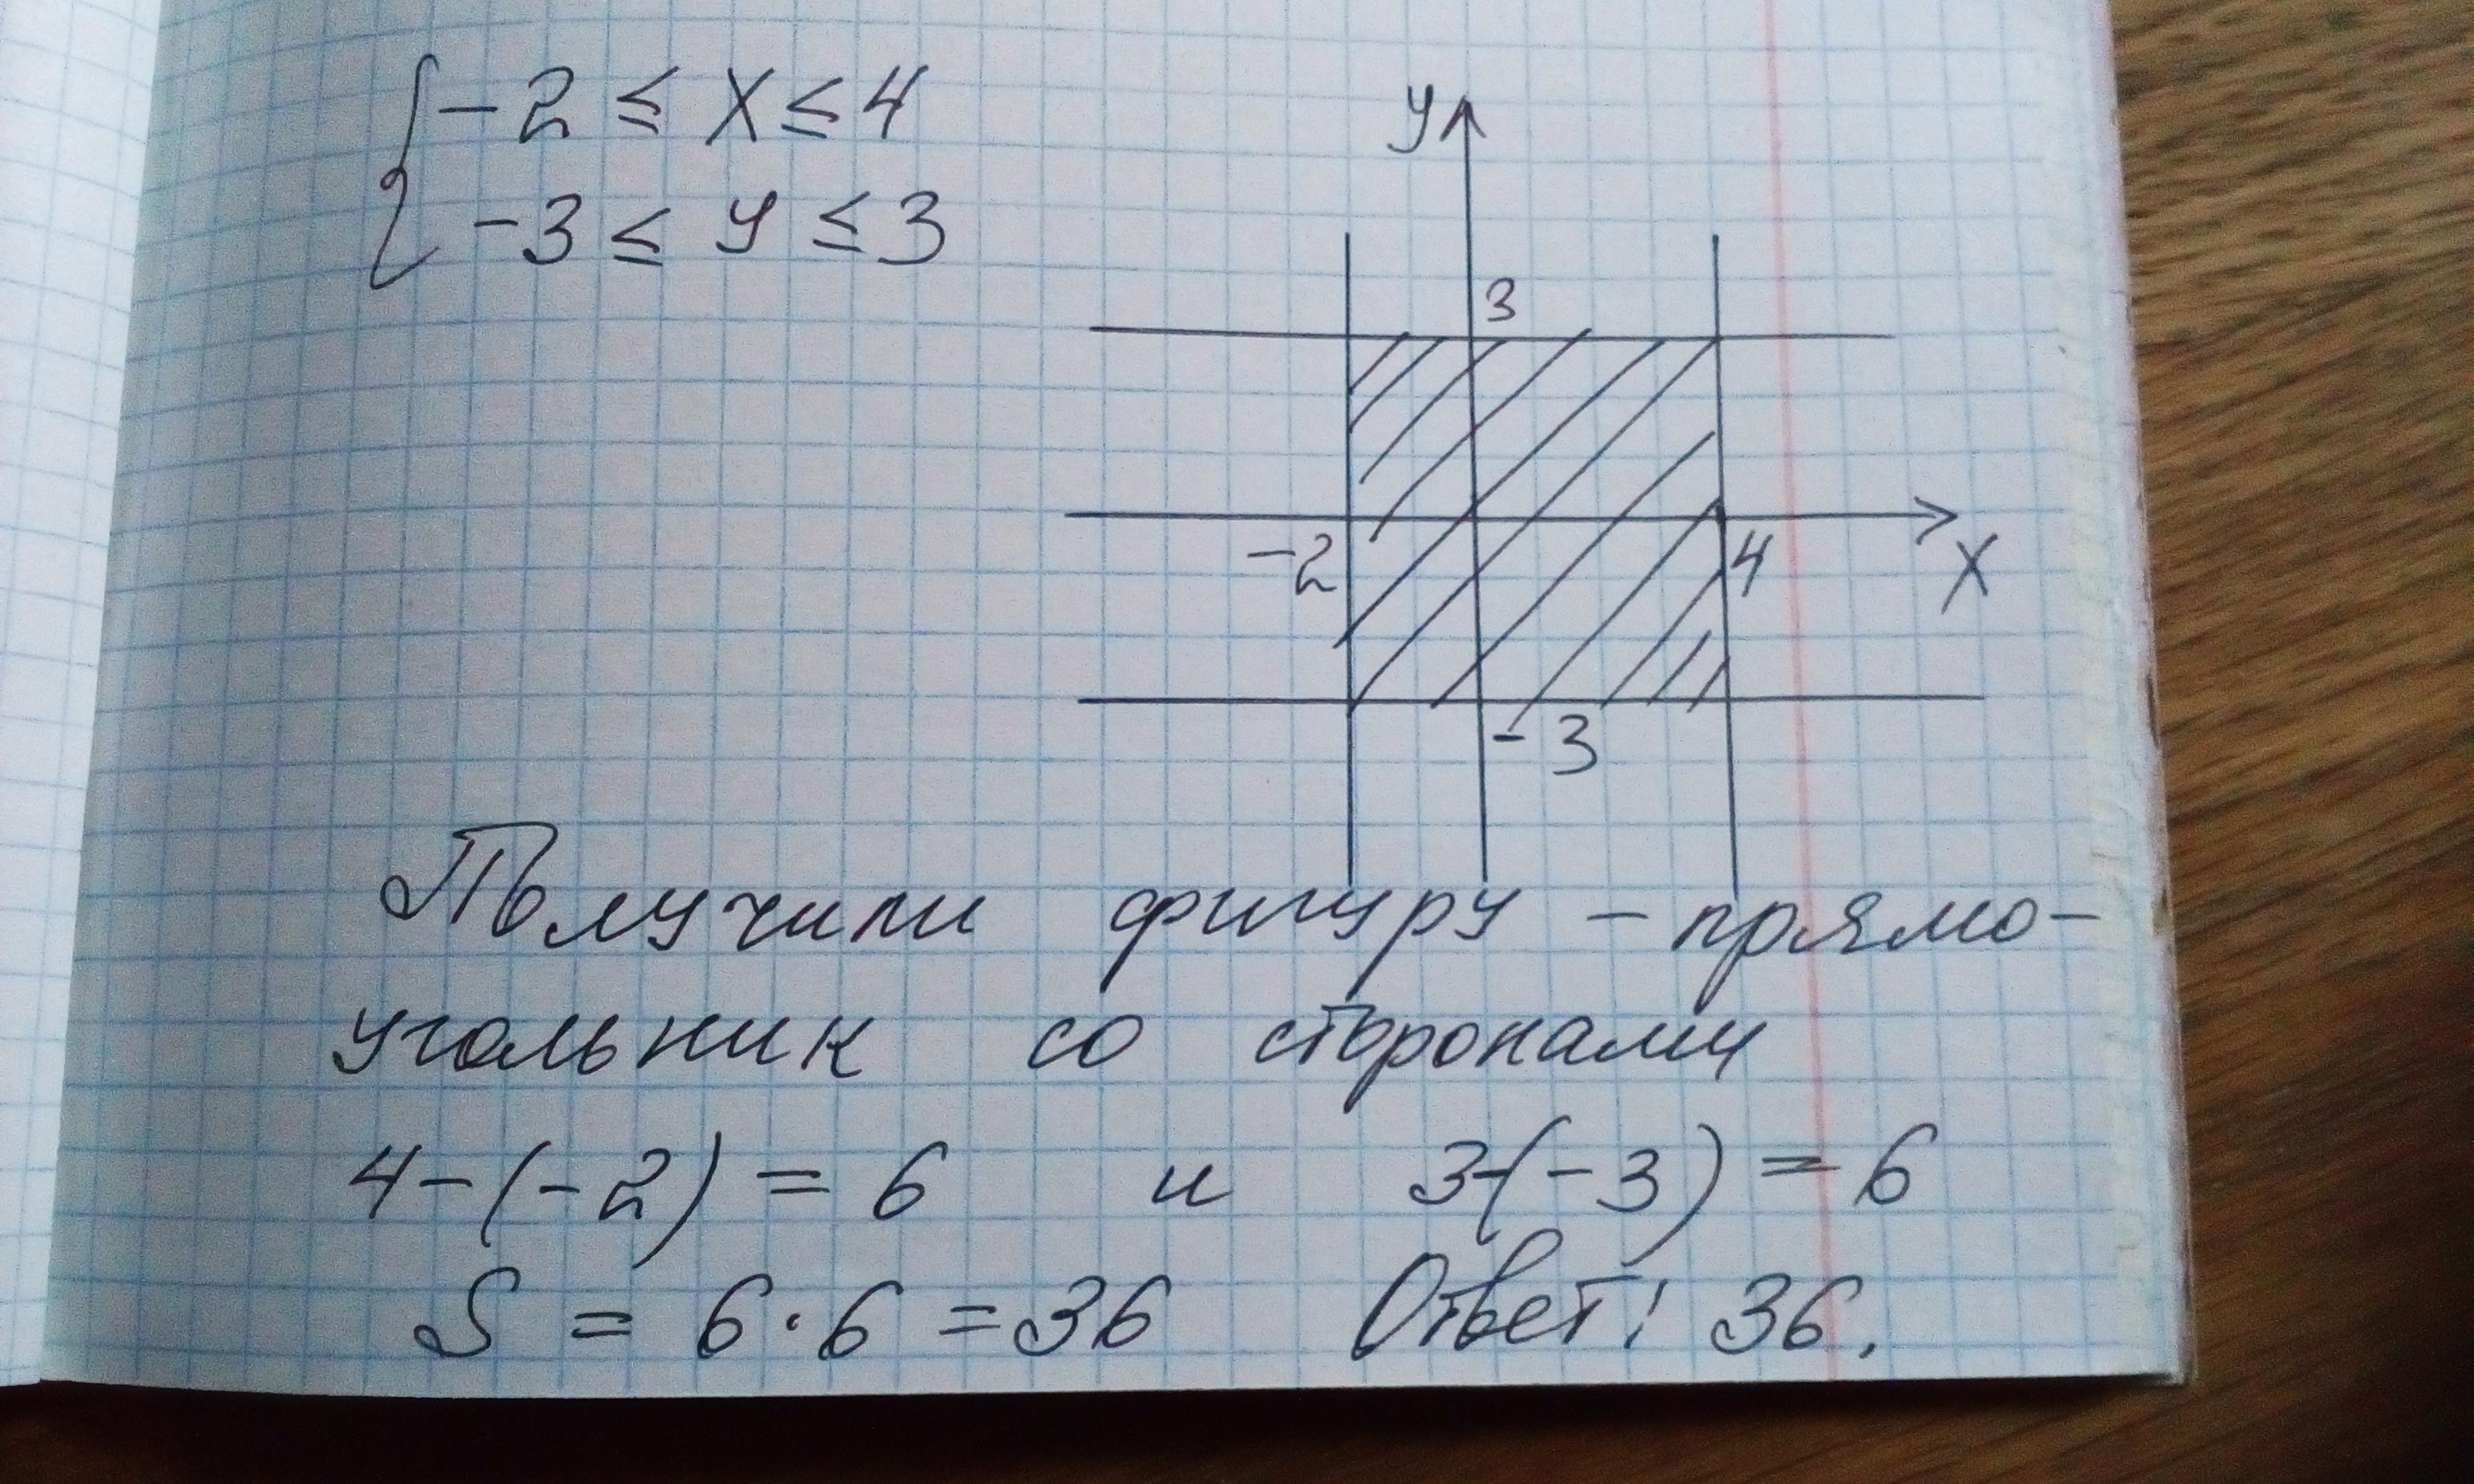 -2 ≤ x ≤ 4
-3 ≤ y ≤ 3
y
3
-2
4
x
-3
Получили фигуру - прямо-
угольник со сторонами
4-(-2) = 6 и 3-(-3) = 6
S = 6·6 = 36 Ответ: 36.